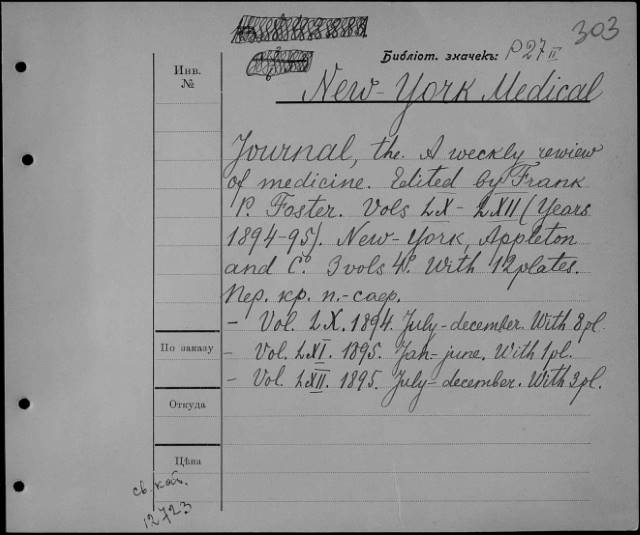 303
Библіот. значекъ: P 27 II
Инв.
№
New-York Medical
Journal, the. A weekly rewiew
of medicine. Edited by Frank
P. Foster. Vols LX - LXII (Years
1894-95). New-York, Appleton
and Cº. 3 vols 4º. With 12 plates.
Пер. кр. п.-саф.
- Vol. LX. 1894. July-december. With 8 pl.
По заказу
- Vol. LXI. 1895. Jan-june. With 1 pl.
- Vol. LXII. 1895. July-december. With 3 pl.
Откуда
Цѣна
св. кат.
12723